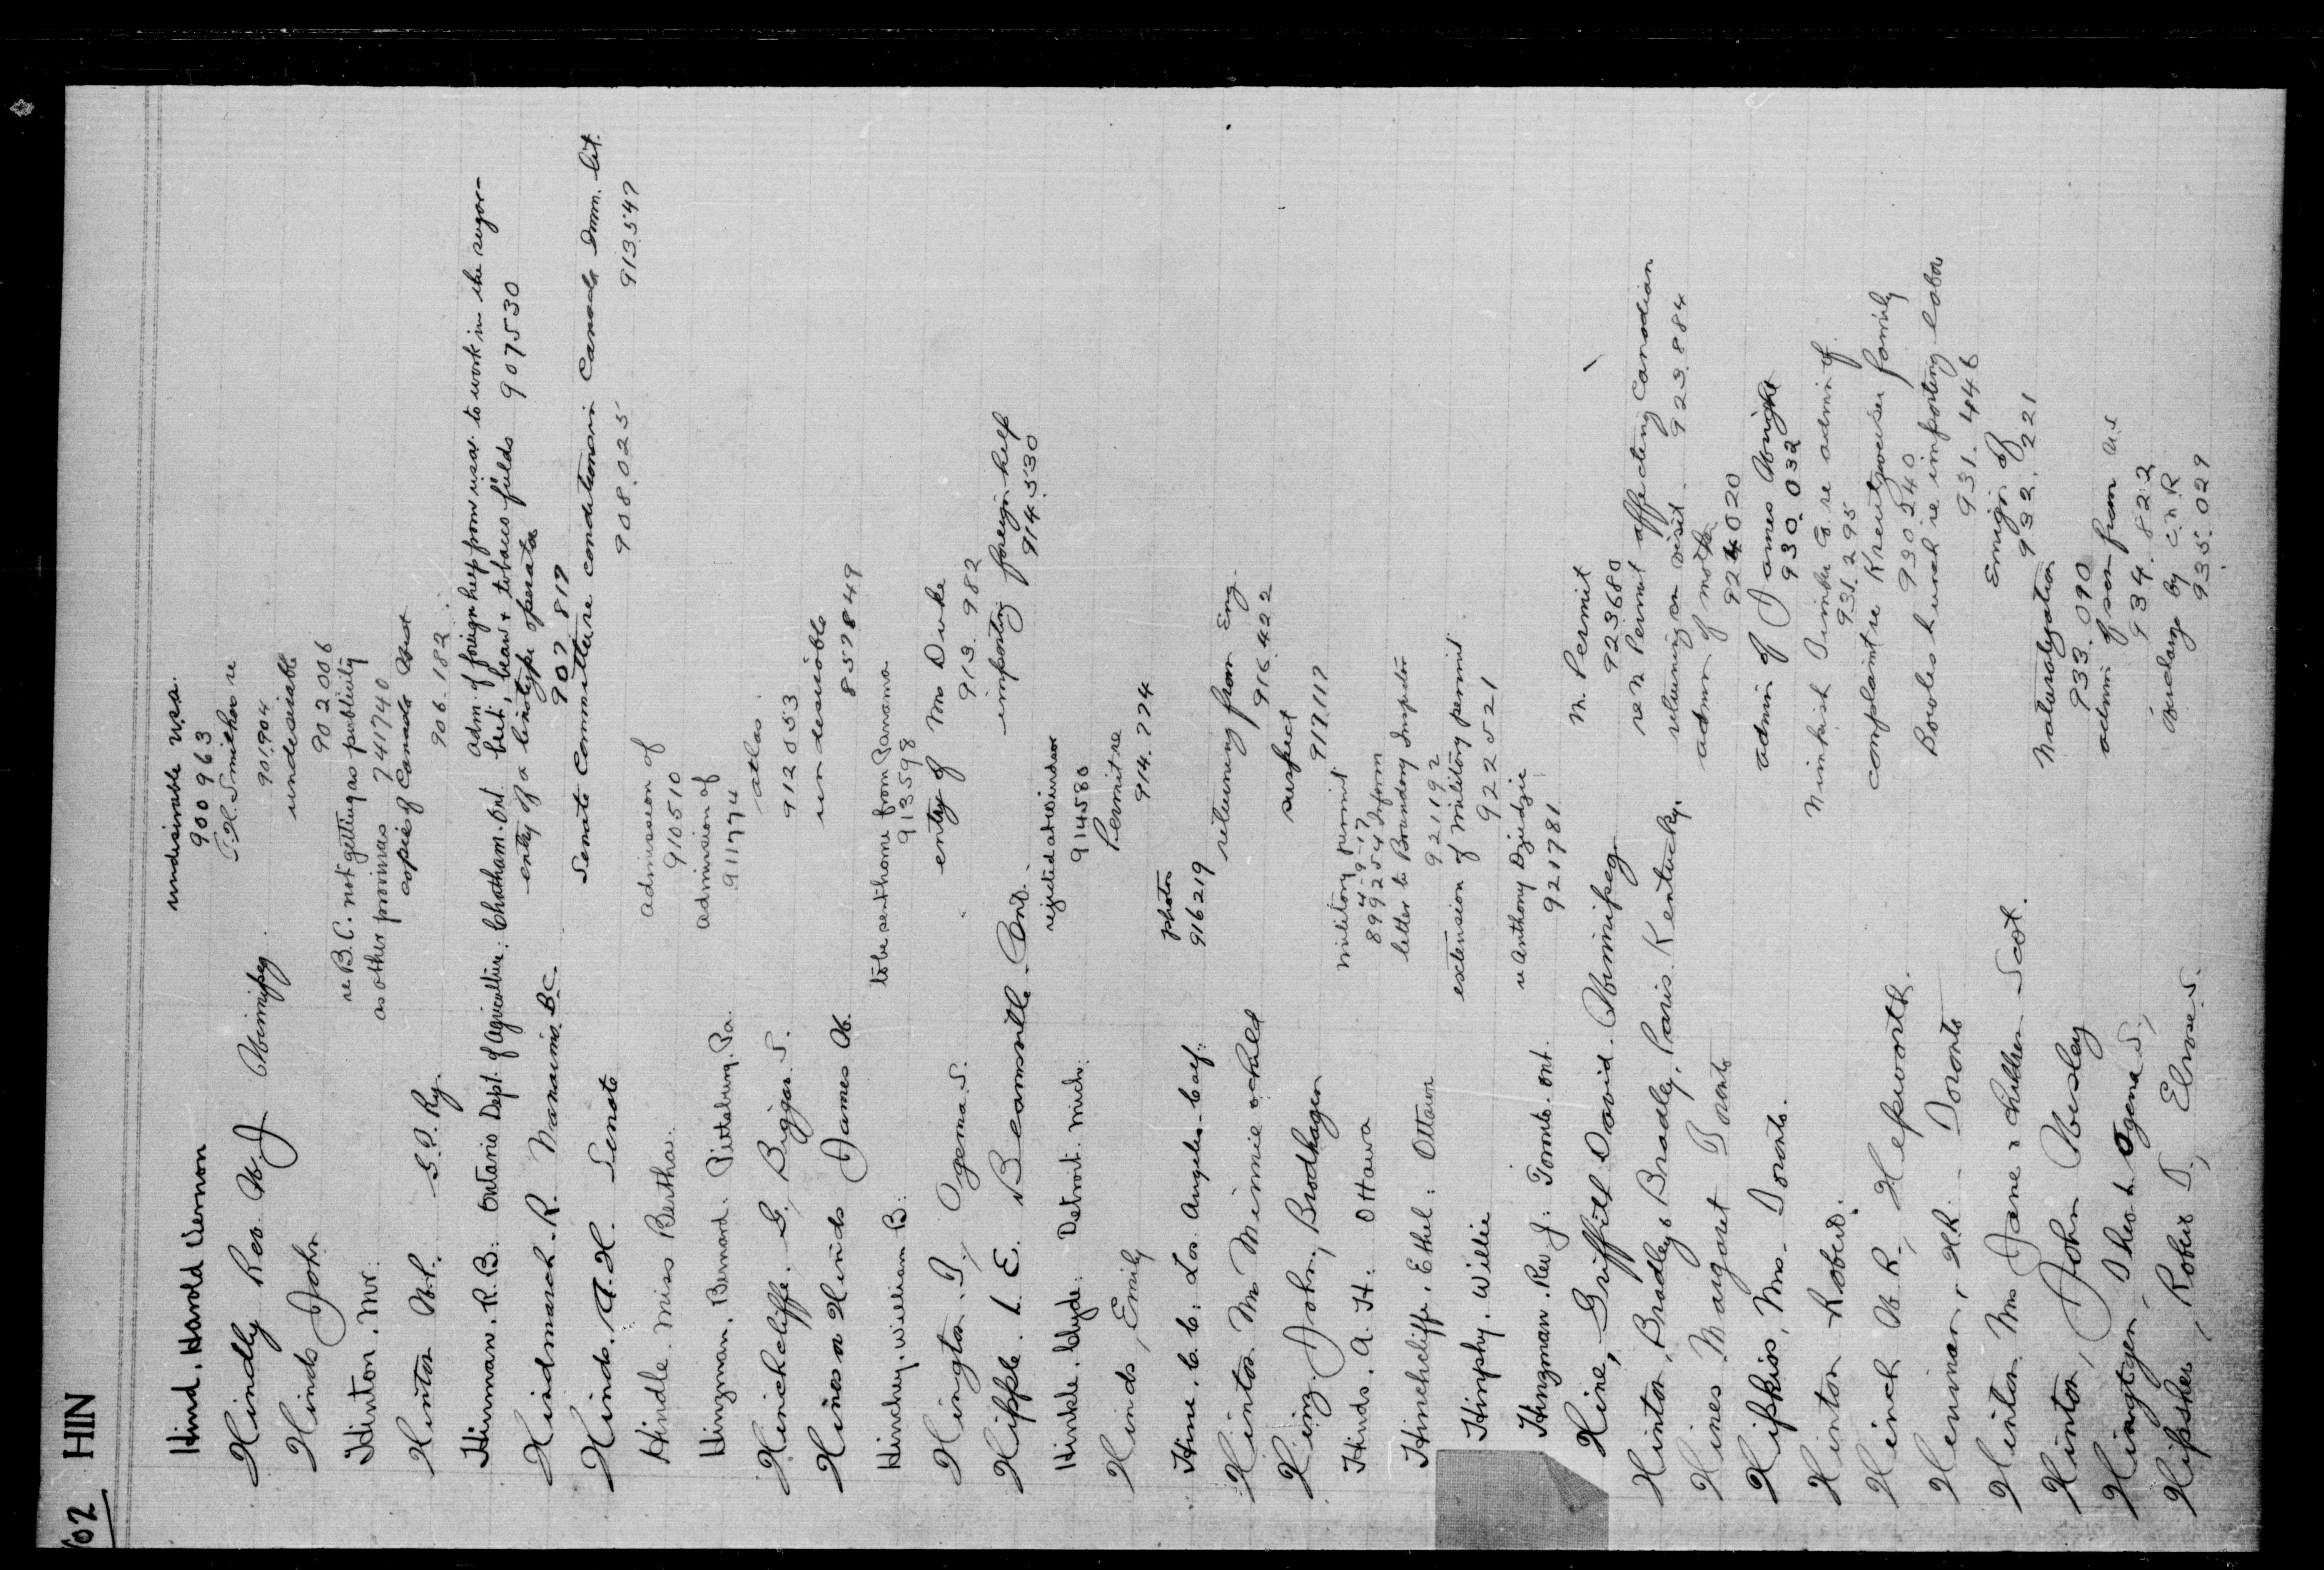 102 HIN
Hind. Harold Vernon undesirable U.S.A.
900963
Hindly Rev W. J Winnipeg J.H. Smither re
901904
Hinds John undesirable
902006
Hinton. Mr. re B.C. not getting as publicity
as other provinces 741740
Hinton W.P. G.T. Ry. copies of Canada West
906.182
Hinman. R.B. Ontario Dept. of Agriculture: Chatham. Ont. adm. of foreign help from U.S.A. to work in the sugar-
beet, bean & tobacco fields 907530
Hindmarch. R. Nanaimo B.C. entry of a linotype operator
907819
Hinds. A.H. Senate Senate Committee re conditions in Canada Imm. lit.
908.025 913547
Hindle. Miss Bertha: admission of
910510
Hingman. Bernard. Pittsburg. Pa. admission of
911774
Hinchcliffe. G. Biggar S. atlas
912853
Hines or Hinds James W. undesirable
857849
Hinchey. William B. to be sent home from Panama
913598
Hington. T. Ogema. S. entry of Mr Duke
913.982
Hipple. L. E. Beamsville. Ont. importing foreign help
914.530
Hinkle. Clyde: Detroit. Mich: rejected at Windsor
914580
Hinds, Emily Permit re
914.774
Hine. C.C. Los Angeles. Calf. photos
916219
Hinton Mrs Minnie & child returning from Eng.
916.422
Hing. John, Brodhagen suspect
917117
Hinds. A. H. Ottawa military permit
4-9-17
899254 Inform
Hinchcliffe, Ethel: Ottawa letter to Boundary Inspector
921192
Hinphy. Willie extension of military permit.
922521
Hingman. Rev J: Toronto. Ont. re Anthony Dziedzic
921781
Hine, Griffith David. Winnipeg M. Permit
923680
Hinton, Bradley & Bradley, Paris Kentucky. re M Permit affecting Canadian
returning on visit. 923.884
Hines Margaret Toronto admn of mother
924020
Hipkiss, Mrs. Toronto. admin of James Wright
930.032
Hinton Robert. Nimpkish Timber Co re admin of
931.295
Hinch W.R., Hepworth. complaint re Kreutzweiser family
930240
Henman, H.R. Toronto Bowles Lunch re importing labor
931.446
Hinton Mrs Jane & children Scot. Emign of
932.221
Hinton, John Wesley Naturalization
933.090
Hingtgen, Theo L Ogema S, admn of son from U.S
934.822
Hipsher, Robert T, Elrose. S. by C.N.R
935.029